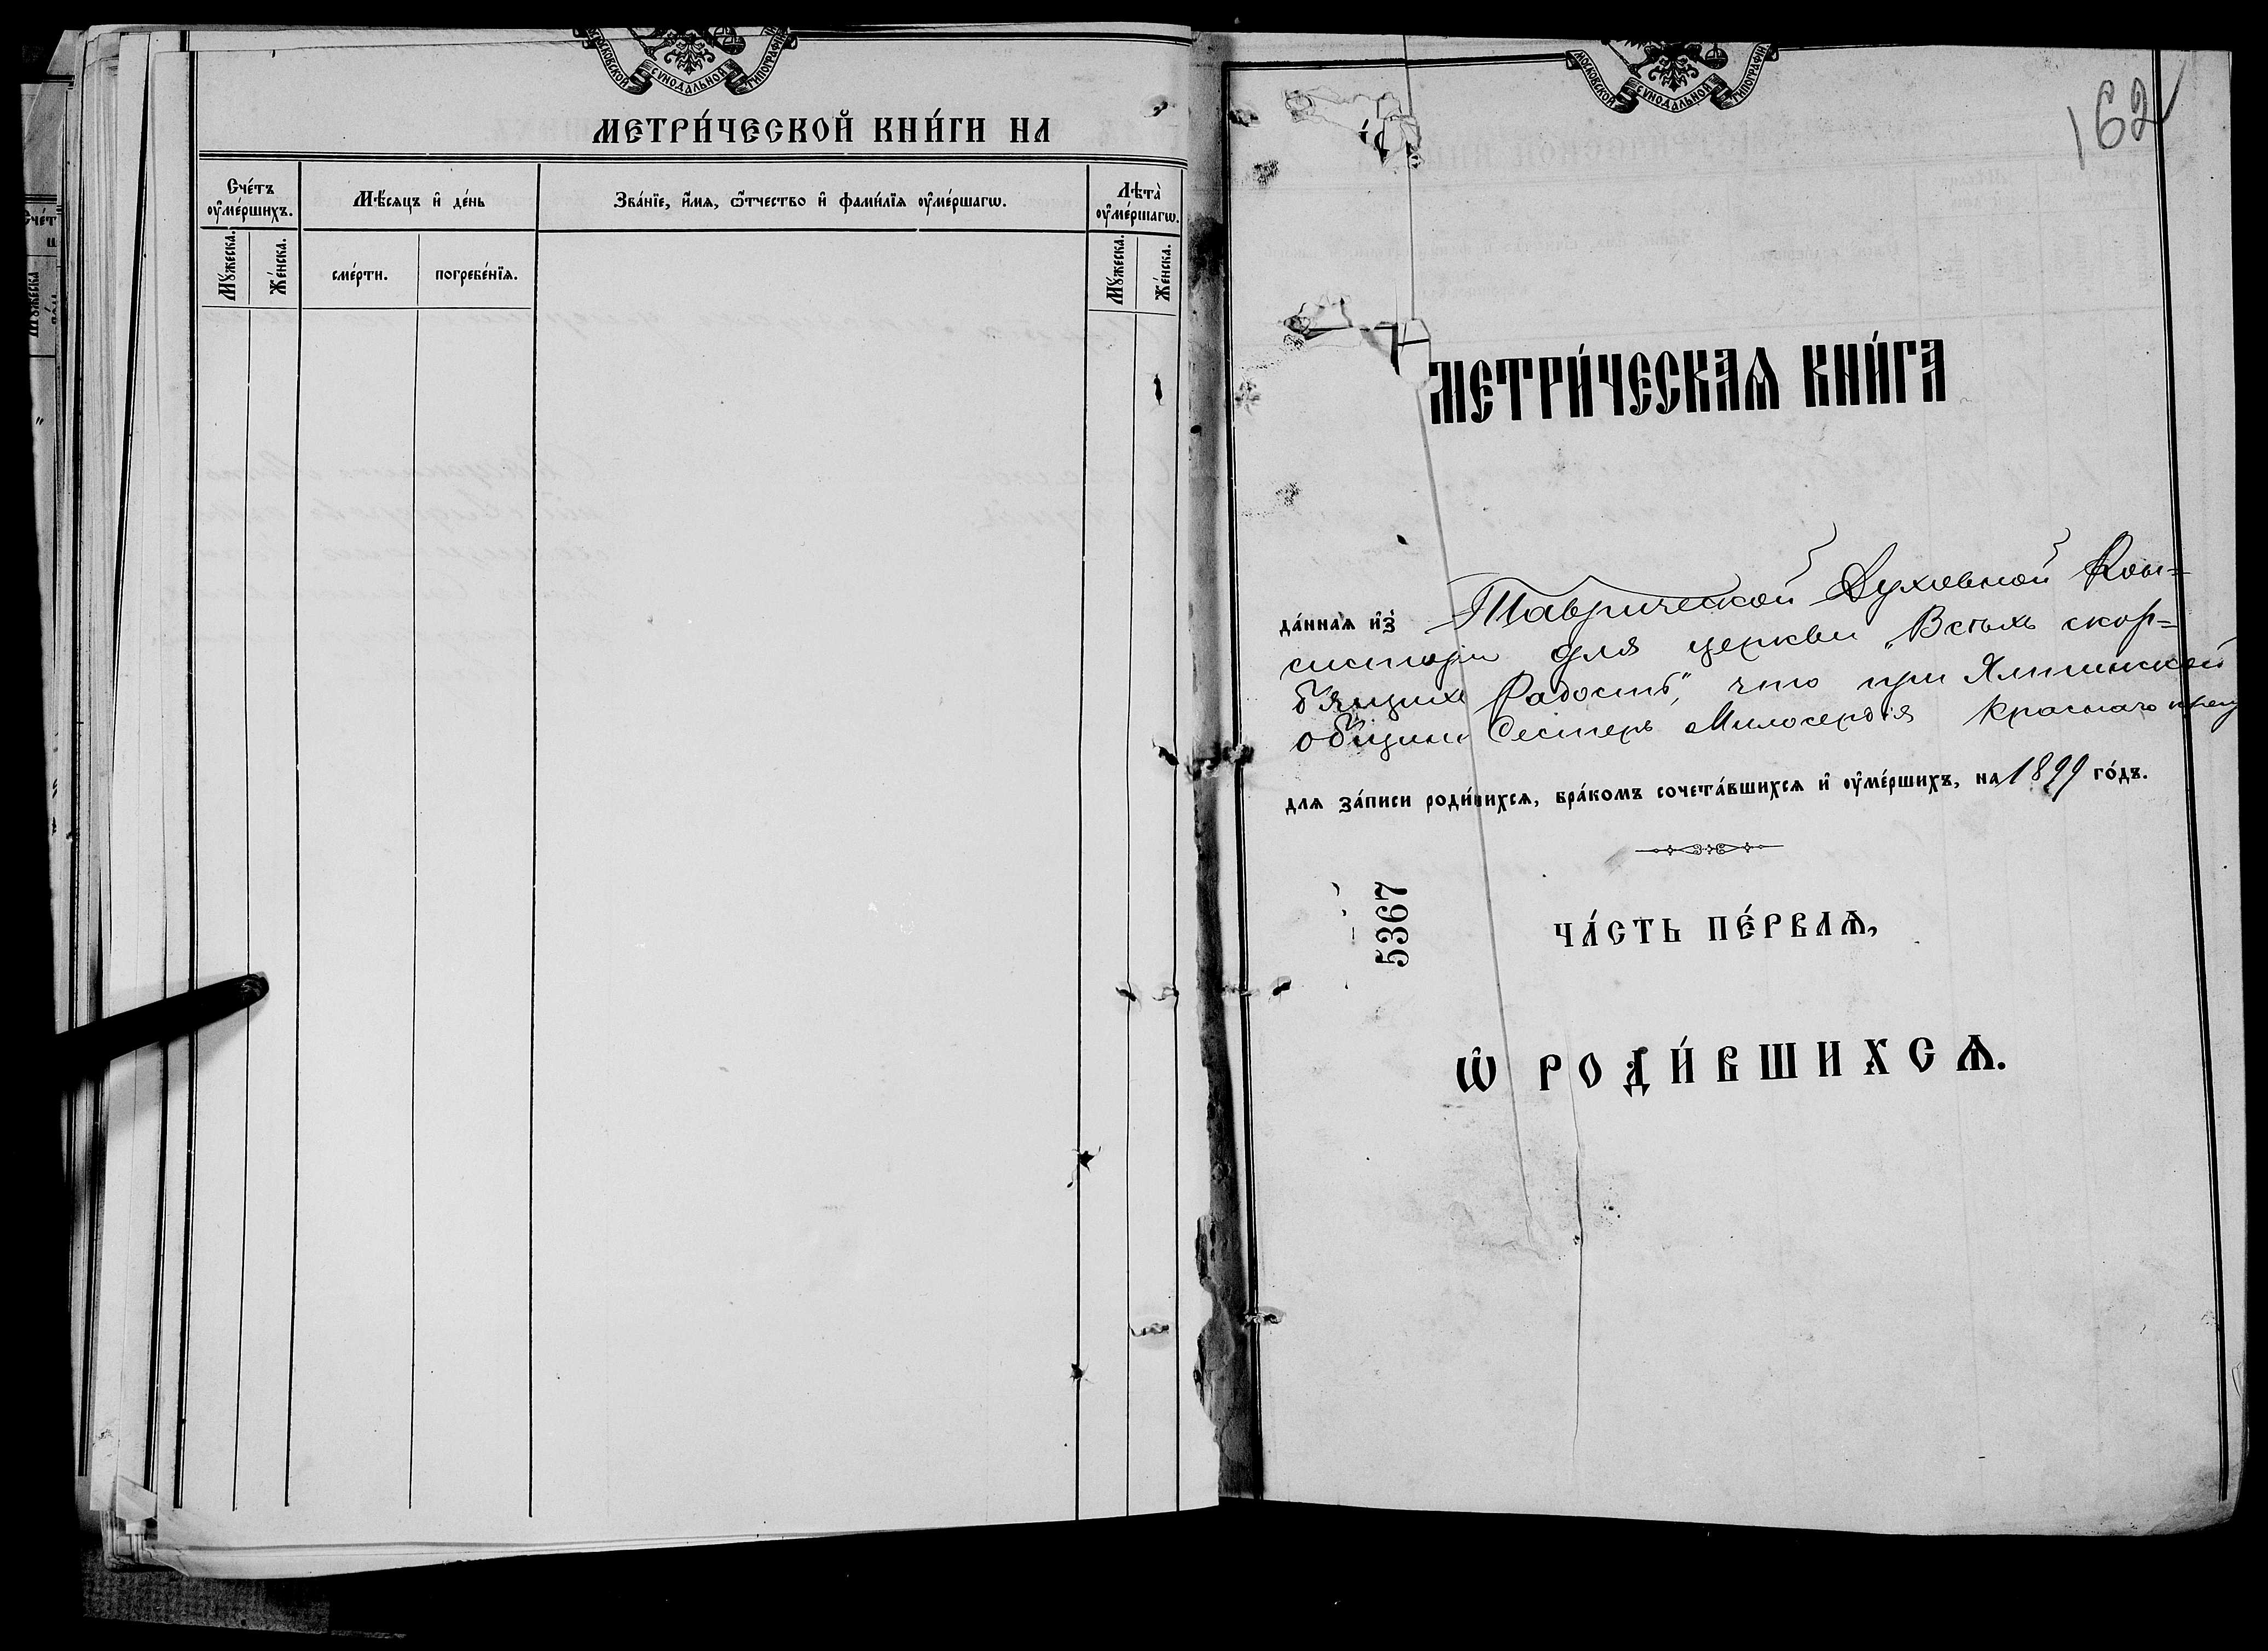 МОСКОВСКОЙ СѴНОДАЛЬНОЙ ТИПОГРАФІИ
МЕТРИ́ЧЕСКОЙ КНИ́ГИ НА
Сче́тъ оу҆ме́ршихъ.
Мѣ́сяцъ и҆ де́нь
Зва́нїе, и҆́мѧ, ѻ҆́тчество и҆ фами́лїѧ оу҆ме́ршагѡ.
Лѣта̀ оу҆ме́ршагѡ.
Мꙋ́жеска.
Же́нска.
сме́рти.
погребе́нїѧ.
Мꙋ́жеска.
Же́нска.
МОСКОВСКОЙ СѴНОДАЛЬНОЙ ТИПОГРАФІИ
162
МЕТРИ́ЧЕСКАѦ КНИ́ГА
да́ннаѧ и҆з̾ Таврической Духовной Кон=
систоріи для церкви „Всѣхъ скор=
бящихъ Радость", что при Ялтинской
общинѣ Сестеръ Милосердія Краснаго
длѧ за́писи роди́вшихсѧ, бра́комъ сочета́вшихсѧ и҆ оу҆ме́ршихъ, на 1899 го́дъ.
5367
ЧА́СТЬ ПЕ́РВАѦ,
Ѡ҆ РОДИ́ВШИХСѦ.